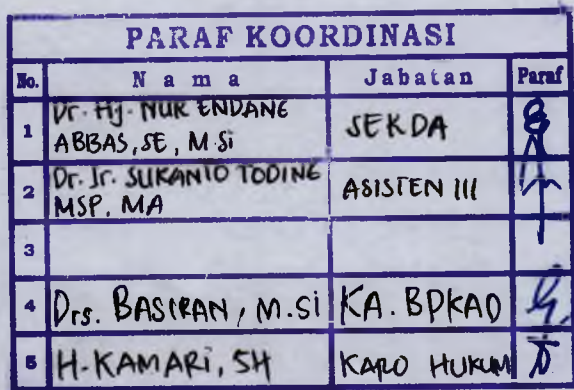 PARAF KOORDINASI
No. N a m a Jabatan Paraf
1 Dr. Hj. NUR ENDANG ABBAS, SE, M.Si SEKDA
2 Dr. Ir. SUKANTO TODING MSP, MA ASISTEN III
3
4 Drs. BASIRAN, M.Si KA. BPKAD
5 H. KAMARI, SH KARO HUKUM